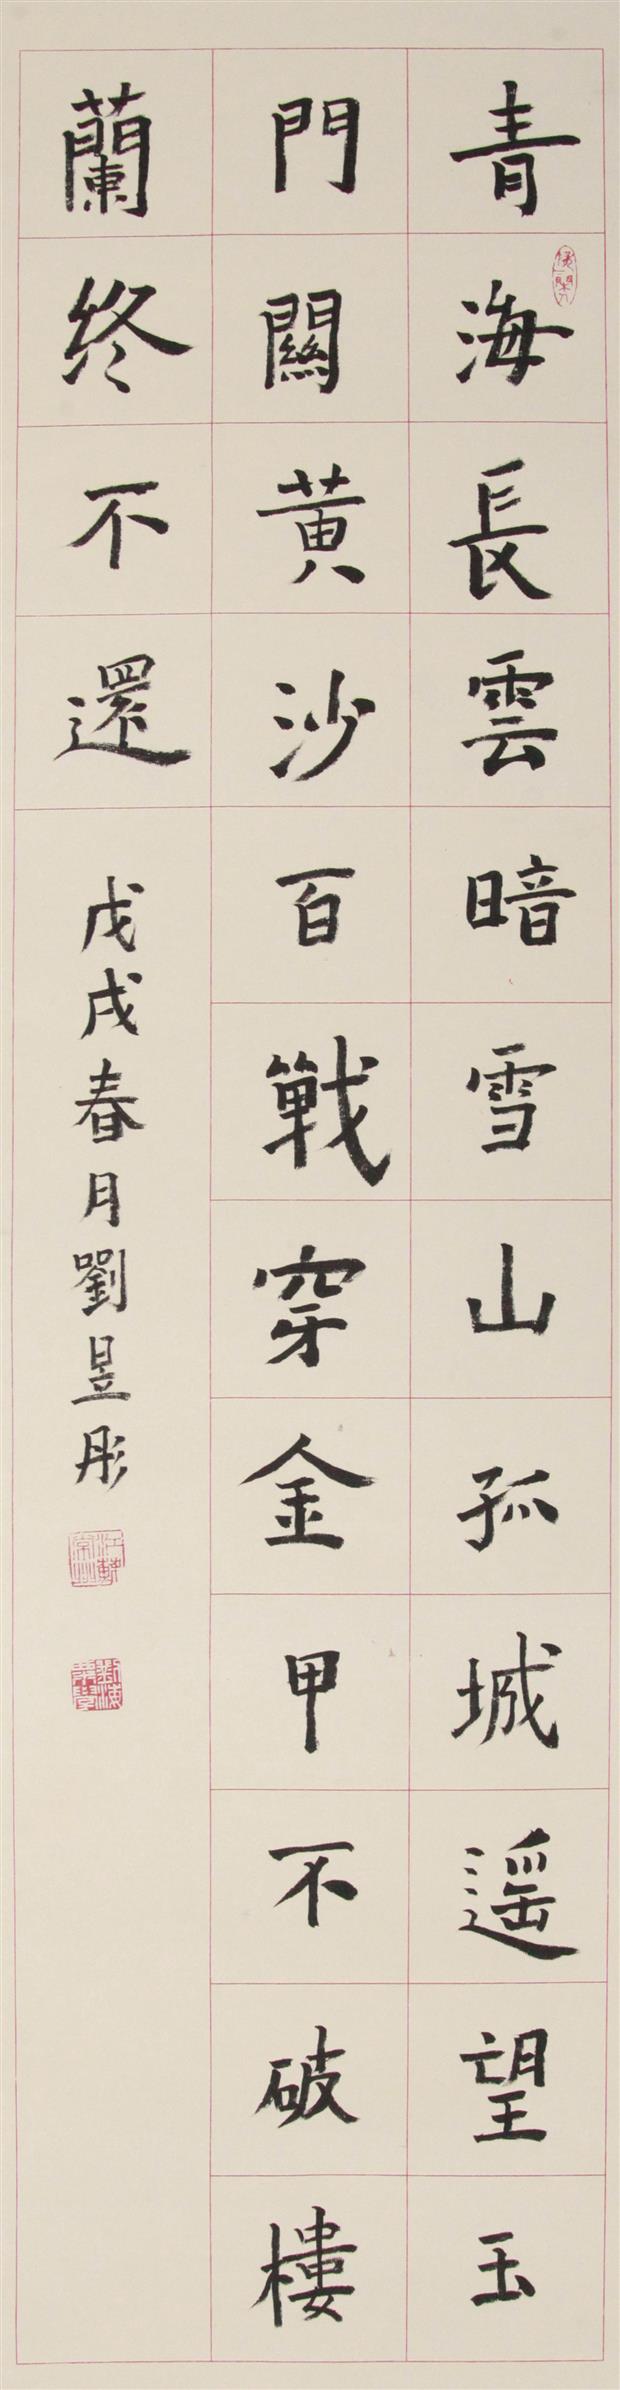 青海長雲暗雪山孤城遥望玉
門關黄沙百戰穿金甲不破樓
蘭终不還
戊戌春月劉昱彤